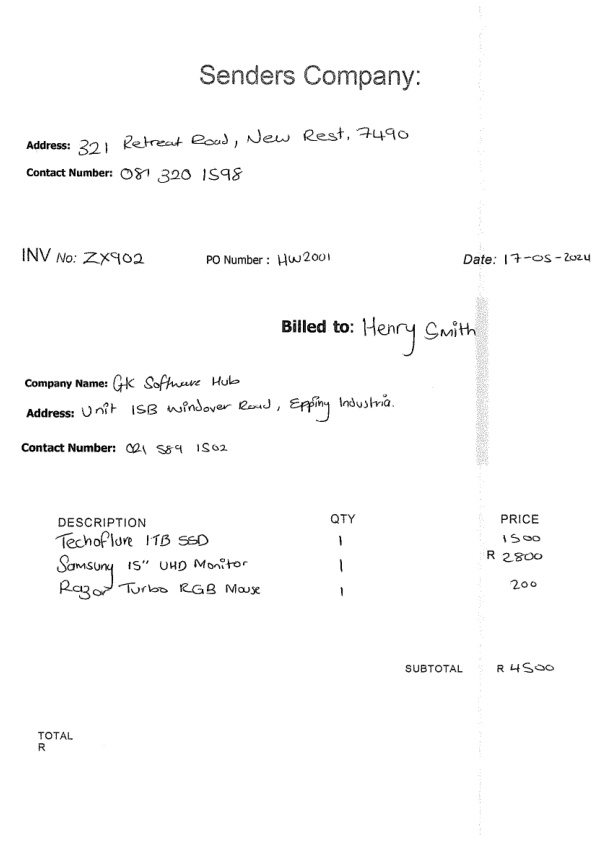 Senders Company:
Address: 321 Retreat Road, New Rest, 7490
Contact Number: 081 320 1598
INV No: ZX902 PO Number : HW2001 Date: 17-05-2024
Billed to: Henry Smith
Company Name: GK Software Hub
Address: Unit 15B Windover Road, Epping Industria.
Contact Number: 021 589 1502
DESCRIPTION QTY PRICE
Techoflure 1TB SSD 1 1500
Samsung 15" UHD Monitor 1 R 2800
Razor Turbo RGB Mouse 1 200
SUBTOTAL R 4500
TOTAL
R